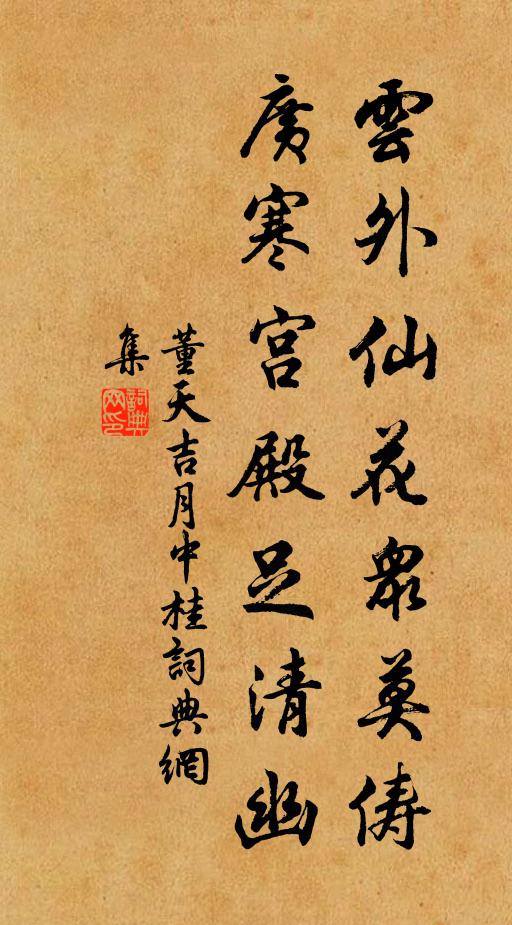 雲外仙花衆莫儔
廣寒宮殿足清幽
董天吉月中桂詞典網
集
詞典網印